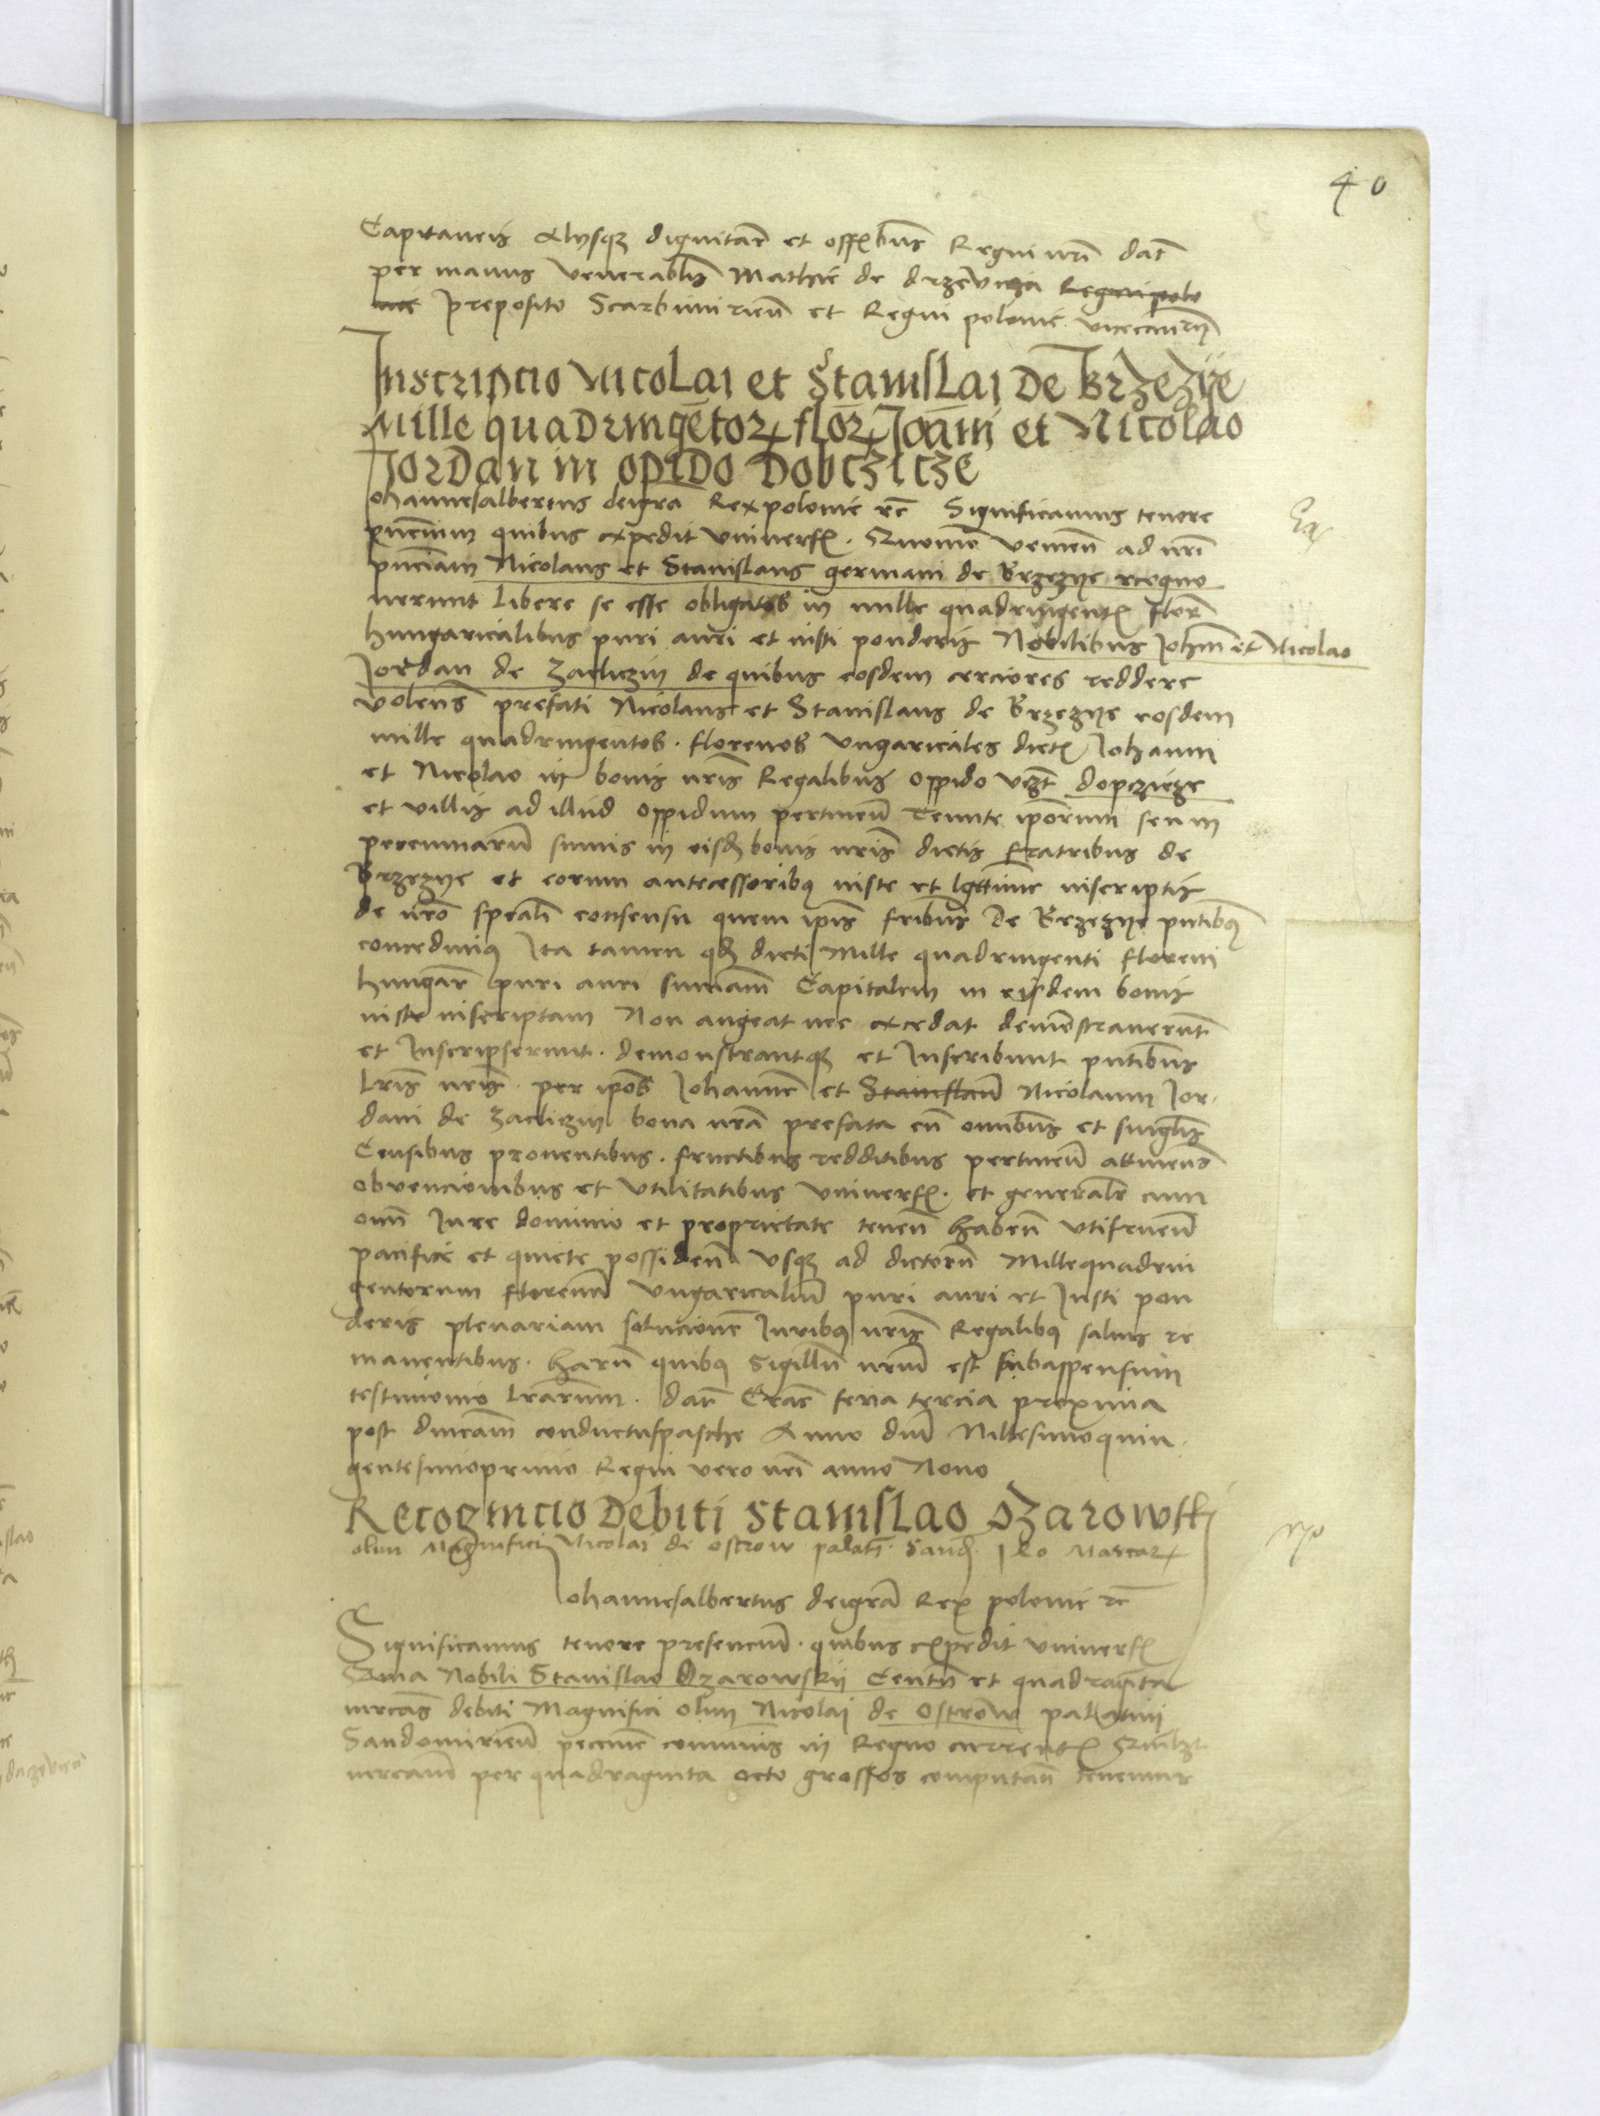 40
Capitaneis Alysq dignitar et offibus Regni nri dat
per manus venerablis Mathie de drzevicza Regni polo
nie preposito Scarbimirien et Regni polonie vicecanrii
Inscripcio Nicolai et Stanislai de Brzezye
Mille quadringetor flor Joani et Nicolao
Jordan in opido Dobczicze
Johannesalbertus deigra Rex polonie rc Significamus tenore
pncium quibus expedit universis. Quomo venien ad nri
pnciam Nicolaus et Stanislaus germani de Brzezye recogno
verunt Libere se esse obligatos in mille quadringentis floren
hungaricalibus puri auri et iusti ponderis Nobilibus Johni et Nicolao
Jordan de Zacliczin de quibus eosdem cerciores reddere
volens prefati Nicolaus et Stanislaus de Brzezye eosdem
mille quadringentos. florenos Ungaricales dictis Johanni
et Nicolao in bonis nris Regalibus Oppido vczt dopcziecze
et villis ad illud Oppidum pertinen Tenute iporum seu in
pecuniarum sumis in eisd bonis nris dictis Fratribus de
Brzezye et eorum antecessoribus iuste et lgttime inscriptis
de nro speciali consensu quem ipis fribus De Brzezye pntibus
concedimus Ita tamen qd dicti Mille quadringenti floreni
hungar puri auri sumam Capitalem in eisdem bonis
iuste inscriptam Non augeat nec excedat demonstraverunt
et Inscripserunt. demonstrantq et Inscribunt pntibus
Lris nris. per ipos Johanne et Stanislaum Nicolaum Jor
dani de Zacliczin bona nra prefata cu omibus et singlis
Censibus proventibus. fructibus redditibus pertinen attinens
obvencionibus et Utilitatibus universis. et generaliter cum
omi Jure dominio et proprietate tenen haben Utifruen
pacifice et quiete possiden Usq ad dictorum Millequadrin
gentorum florenu Ungaricaliu puri auri et Justi pon
deris plenariam solucione Juribus nris Regalibus salvis re
manentibus. harum quibus Sigillu nrum est subappensum
testimonio Lrarum. dat Crac feria tercia proxima
post dnicam conductuspasche Anno dni Millesimoquin
gentesimoprimo Regni vero nri anno Nono
Recognicio Debiti Stanislao Ozarowski
olim Magnifici Nicolai de ostrow palati Sand. 140 Marcar
Johannesalbertus deigra Rex polonie rc
Significamus tenore presencium. quibus expedit universis
Quia Nobili Stanislao Ozarowskii Centu et quadraginta
mrcas debiti Magnifici Olim Nicolai de Ostrow pallatini
Sandomirien pecunie communis in Regno currentis Qualibet
mrcam per quadraginta octo grossos computan tenemur